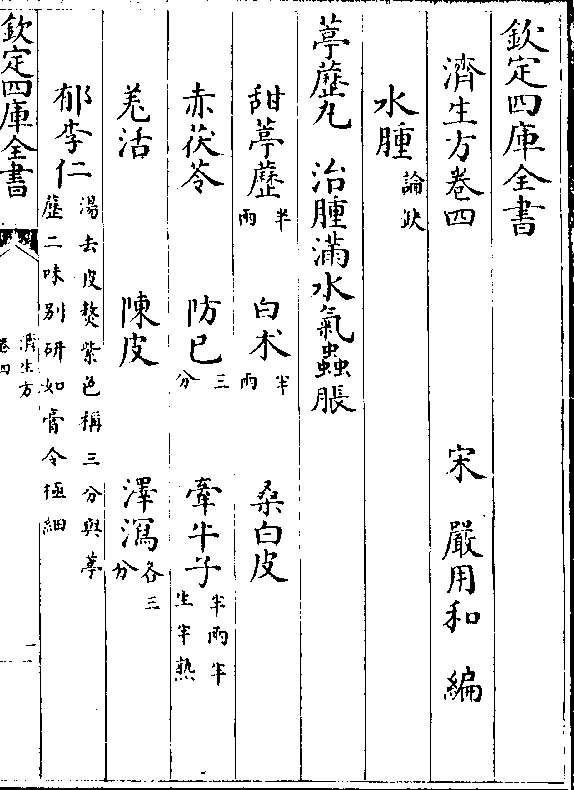 欽定四庫全書
濟生方卷四
宋 嚴用和 編
水腫論泆
葶藶丸 治腫滿水氣蠱脹
甜葶藶半兩 白术半兩 桑白皮
赤茯苓 防已三分 牽牛子半兩半生半熟
羗活 陳皮 澤瀉各三分
郁李仁湯去皮熬紫色稱三分與葶藶二味别研如膏令極細
欽定四庫全書
濟生方
卷四
一